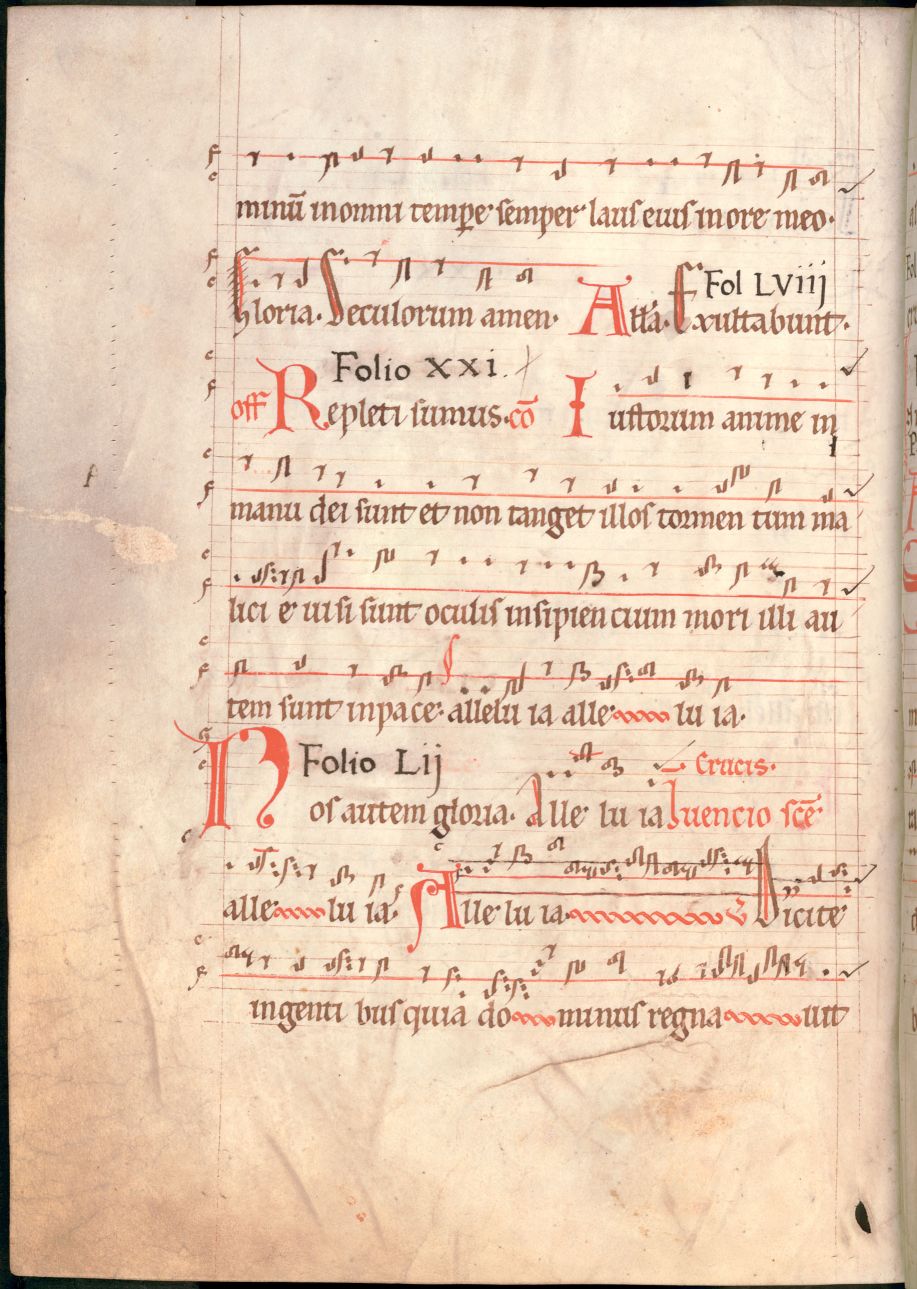 minū in omni temꝑe semper laus eius in ore meo.
Gloria. Seculorum amen. All'a. Exultabunt.
Fol LViij
Folio xxi.
off Repleti sumus. cō Iustorum anime in
manu dei sunt et non tanget illos tormen tum ma
lici e uisi sunt oculis insipien cium mori illi au
tem sunt in pace. allelu ia alle lu ia.
Folio Lij
Crucis.
Nos autem gloria. Alle lu ia Inuencio scē
alle lu ia. Alle lu ia. Dicite
in genti bus quia do minus regna uit